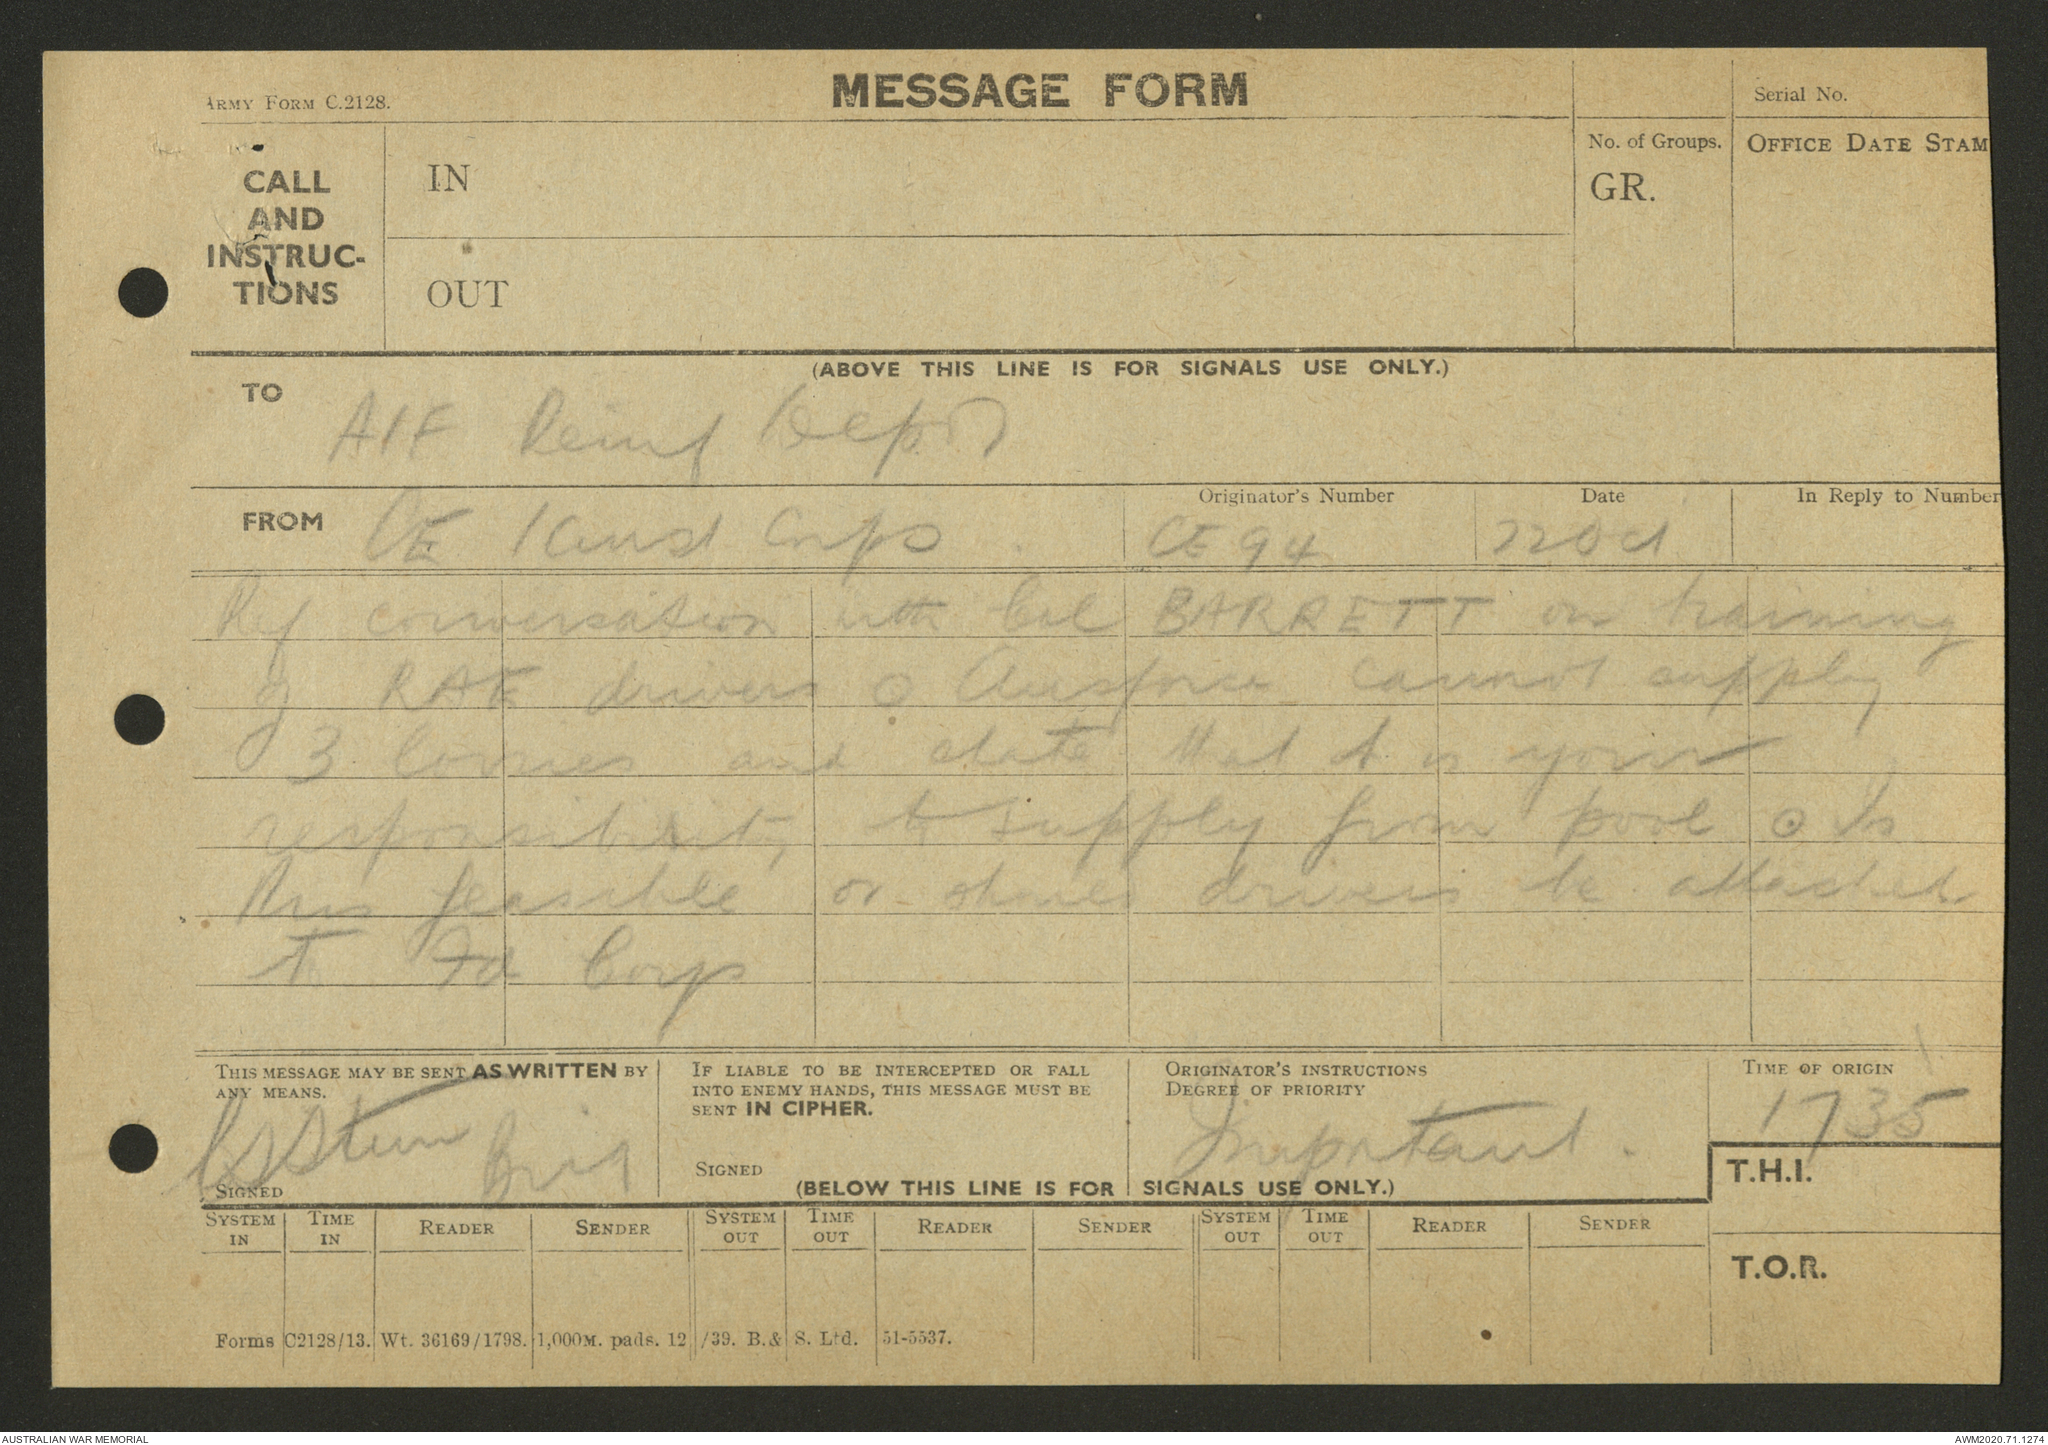 ARMY FORM C.2128.
MESSAGE FORM
Serial No.
CALL
AND
INSTRUC-
TIONS
IN
OUT
No. of Groups.
GR.
OFFICE DATE STAM
(ABOVE THIS LINE IS FOR SIGNALS USE ONLY.)
TO
AIF Reinf Depot
FROM
CE 1 Aust Corps
Originator's Number
CE 94
Date
22 Oct
In Reply to Number
Ref conversation with Col BARRETT on training
of RAE drivers o Ausforce cannot supply
3 lorries and state that it is your
responsibility to supply from pool o Is
this feasible or should drivers be attached
to Fd Corps
THIS MESSAGE MAY BE SENT AS WRITTEN BY
ANY MEANS.
CS Steele Brig
SIGNED
IF LIABLE TO BE INTERCEPTED OR FALL
INTO ENEMY HANDS, THIS MESSAGE MUST BE
SENT IN CIPHER.
SIGNED
ORIGINATOR'S INSTRUCTIONS
DEGREE OF PRIORITY
Important.
TIME OF ORIGIN
1735
(BELOW THIS LINE IS FOR SIGNALS USE ONLY.)
T.H.I.
T.O.R.
SYSTEM IN
TIME IN
READER
SENDER
SYSTEM OUT
TIME OUT
READER
SENDER
SYSTEM OUT
TIME OUT
READER
SENDER
Forms C2128/13. Wt. 36169/1798. 1,000M. pads. 12/39. B.& S. Ltd. 51-5537.
AUSTRALIAN WAR MEMORIAL
AWM2020.71.1274